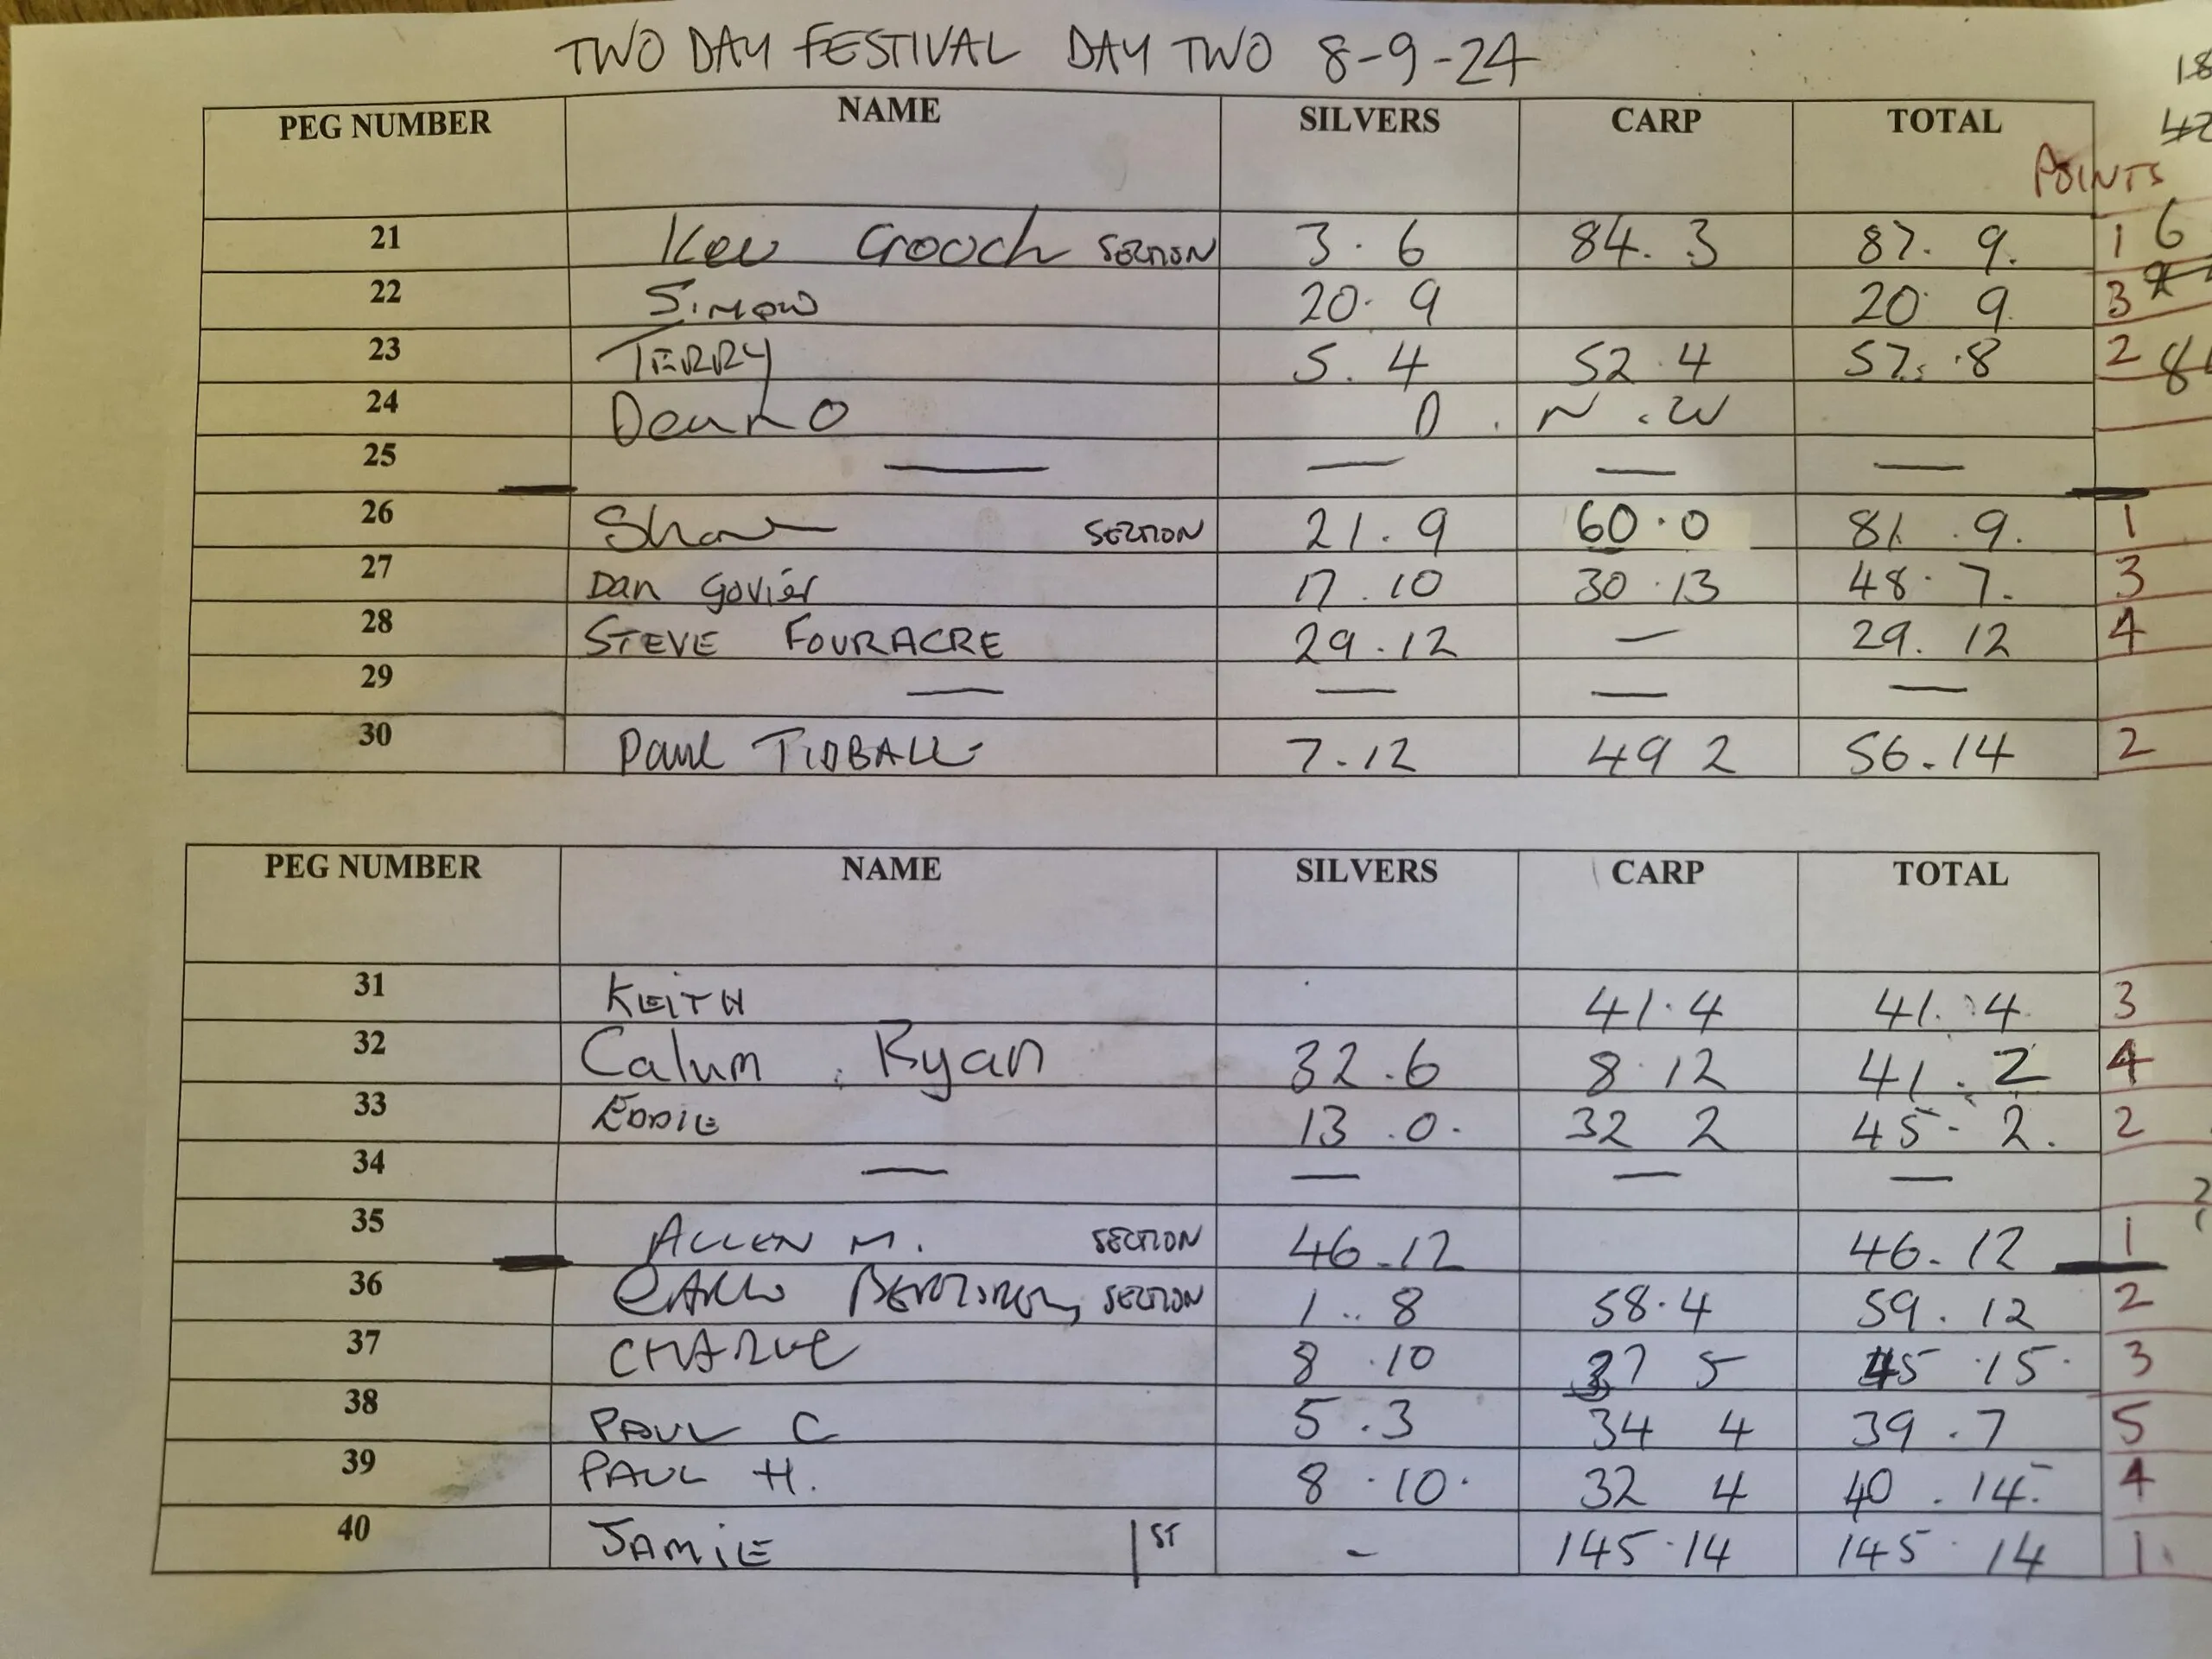 TWO DAY FESTIVAL DAY TWO 8-9-24
18
42
PEG NUMBER NAME SILVERS CARP TOTAL
POINTS
21 Kev Gooch SECTION 3.6 84.3 87.9. 1 6
22 SIMON 20.9 20 9 3
23 TERRY 5.4 52.4 57.8 2 8
24 Deano D.N.W
25 — — — —
26 Shaun SECTION 21.9 60.0 81.9. 1
27 Dan Govier 17.10 30.13 48.7. 3
28 STEVE FOURACRE 29.12 — 29.12 4
29 — — — —
30 Paul TIDBALL 7.12 49 2 56.14 2
PEG NUMBER NAME SILVERS CARP TOTAL
31 KEITH 41.4 41.4 3
32 Calum Ryan 32.6 8.12 41.2 4
33 EDDIE 13.0. 32 2 45-2. 2
34 — — — —
35 ALLEN M. SECTION 46.12 46.12 1
36 CARLO SECTION 1..8 58.4 59.12 2
37 CHARLIE 8.10 37 5 45.15. 3
38 PAUL C 5.3 34 4 39.7 5
39 PAUL H. 8.10. 32 4 40.14. 4
40 JAMIE 1ST - 145.14 145.14 1.